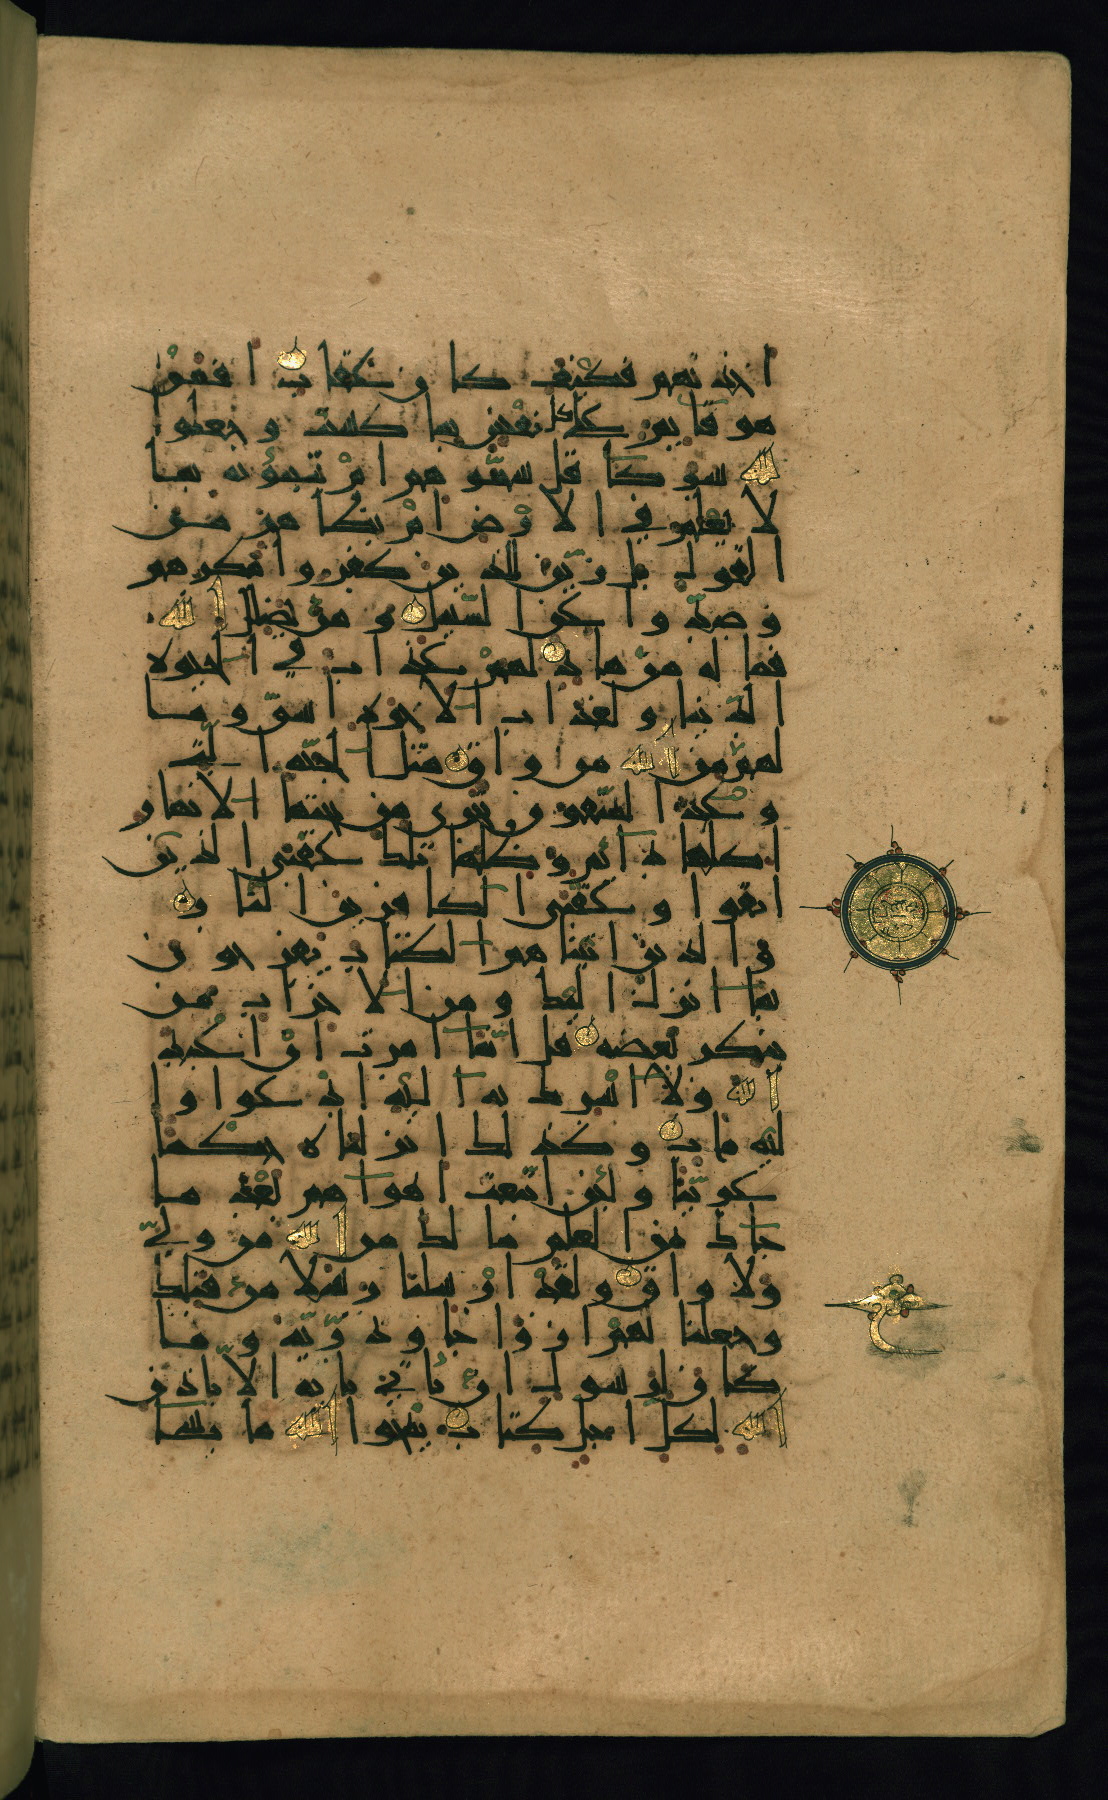 اخذتهم فكيف كان عقاب افمن
هو قايم على كل نفس بما كسبت وجعلوا
لله شركا قل سموهم ام تنبؤنه بما
لا يعلم في الارض ام بظاهر من
القول بل زين للذين كفروا مكرهم
وصدوا عن السبيل ومن يضلل الله
فما له من هاد لهم عذاب في الحيوة
الدنيا ولعذاب الاخرة اشق وما
لهم من الله من واق مثل الجنة التي
وعد المتقون تجري من تحتها الانهار
اكلها دائم وظلها تلك عقبى الذين
اتقوا وعقبى الكافرين النار
والذين اتيناهم الكتاب يفرحون
بما انزل اليك ومن الاحزاب من
ينكر بعضه قل انما امرت ان اعبد
الله ولا اشرك به اليه ادعوا وا
ليه ماب وكذلك انزلناه حكما
عربيا ولئن اتبعت اهواهم بعد ما
جاك من العلم ما لك من الله من ولي
ولا واق ولقد ارسلنا رسلا من قبلك
وجعلنا لهم ازواجا وذرية وما
كان لرسول ان ياتي باية الا باذن
الله لكل اجل كتاب يمحوا الله ما يشا